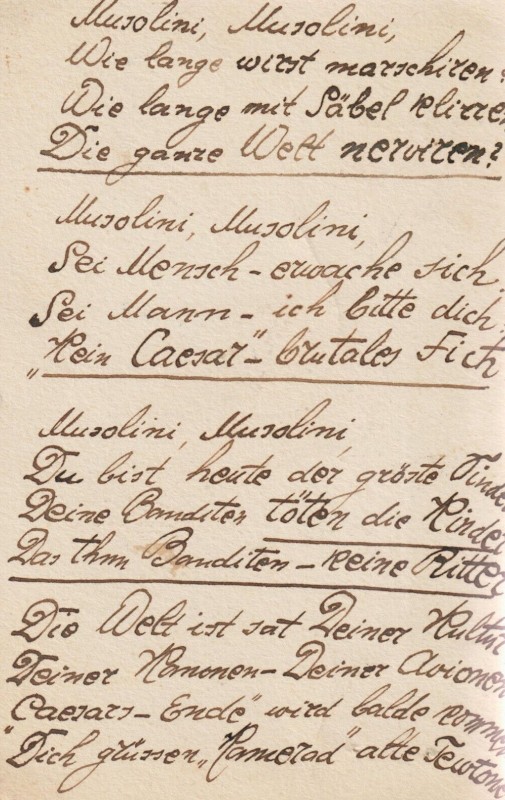 Musolini, Musolini,
Wie lange wirst marschiren?
Wie lange mit Säbel klirren
Die ganze Welt nerviren?
Musolini, Musolini,
Sei Mensch - erwache sich
Sei Mann - ich bitte dich,
"Kein Caesar" - brutales Fich
Musolini, Musolini,
Du bist heute der gröste
Deine Banditen töten die Kinder
Das thun Banditen - keine Ritter
Die Welt ist sat Deiner Kultur
Deiner Kanonen - Deiner Avionen
Caesars - Ende" wird balde kommen
"Dich grüssen „Kamerad" alte Teutone